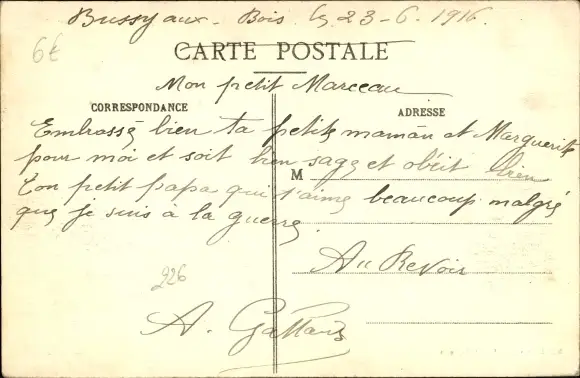 Bussy aux-Bois le 23-6.1916.
6€
CARTE POSTALE
Mon petit Marceau
CORRESPONDANCE
ADRESSE
Embrasse bien ta petite maman et Marguerite
pour moi et soit bien sage et obéit bien
M
Ton petit papa qui t'aime beaucoup malgré
que je suis à la guerre.
Au Revoir
226
A.